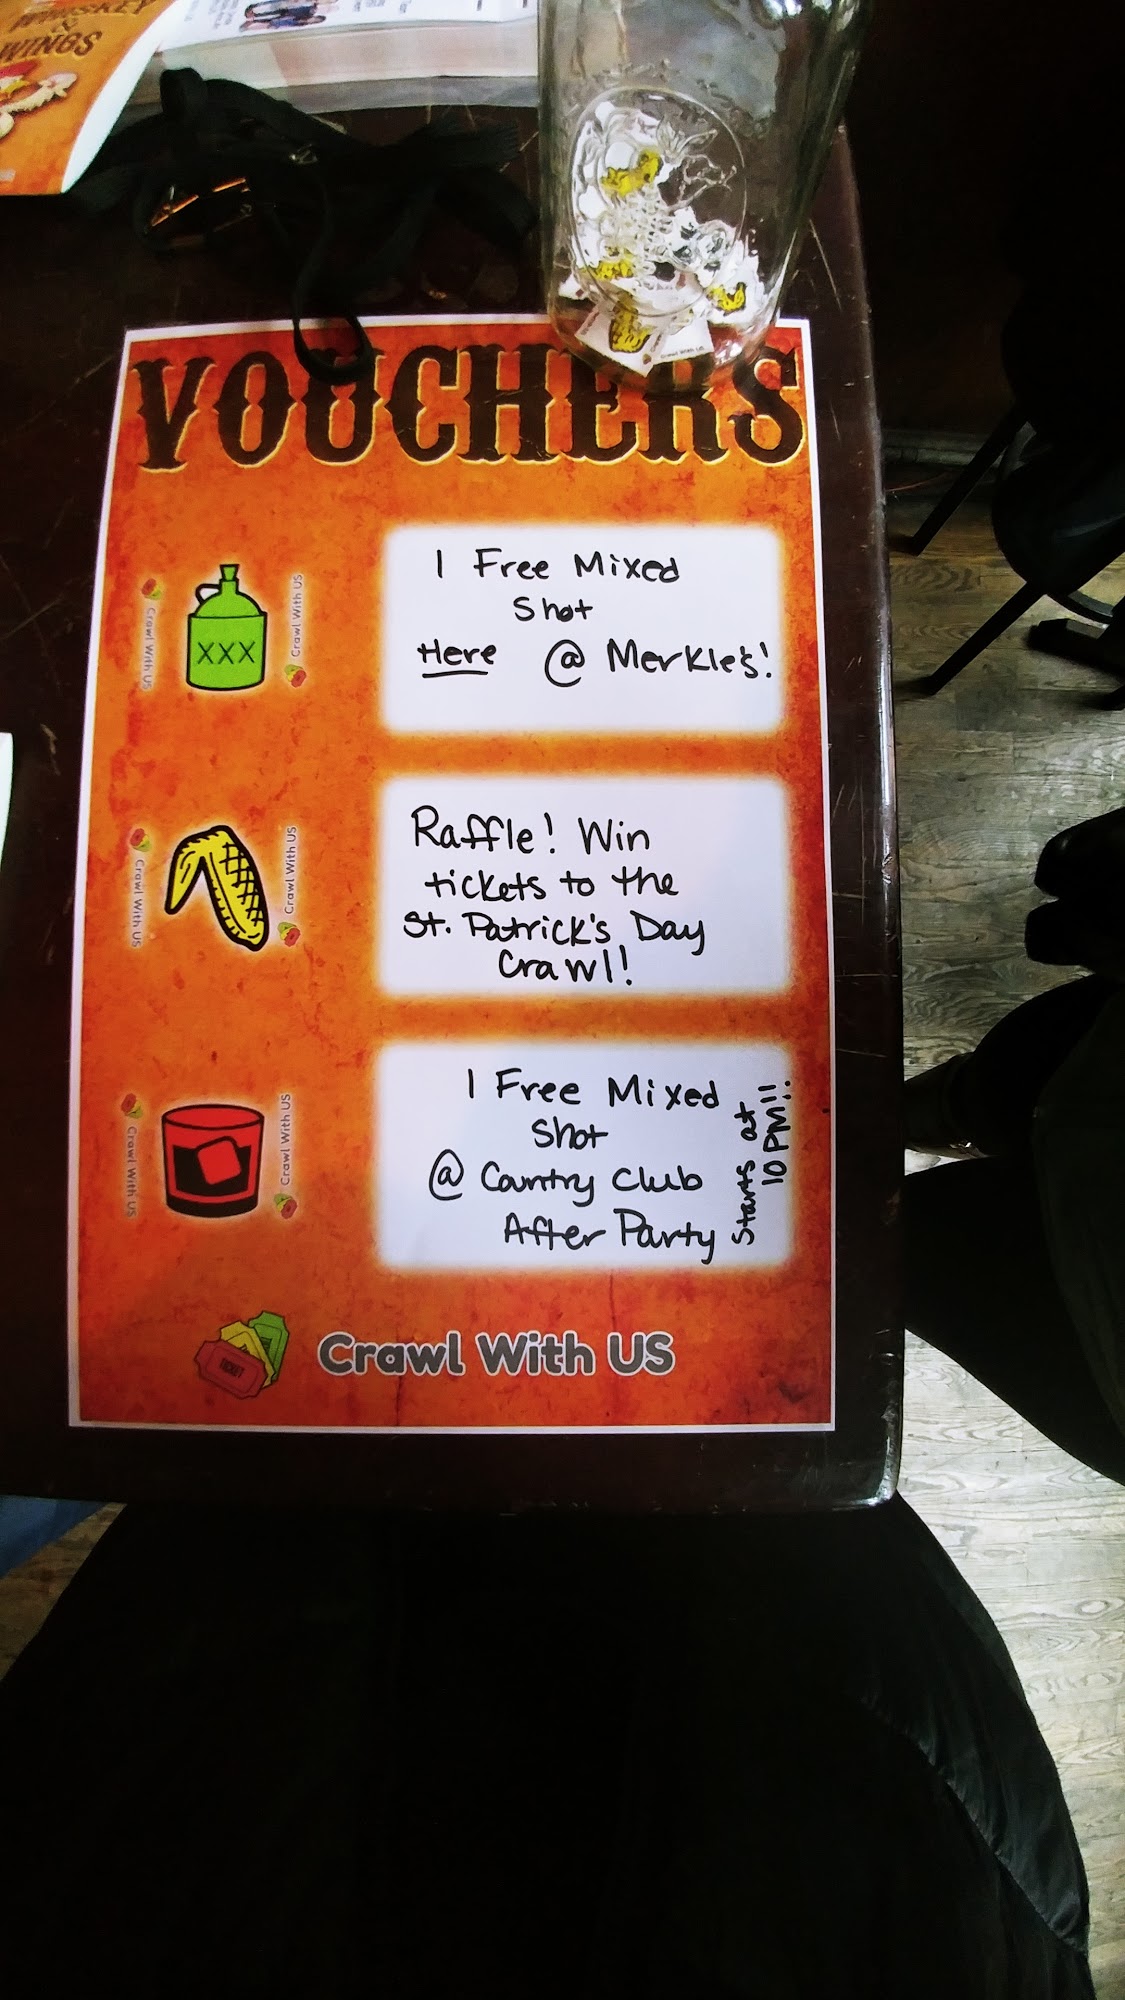 WHISKEY
&
WINGS
VOUCHERS
1 Free Mixed
Shot
Here @ Merkle's!
XXX
Crawl With US
Crawl With US
Raffle! Win
tickets to the
St. Patrick's Day
Crawl!
Crawl With US
Crawl With US
1 Free Mixed
Shot
@ Country Club
After Party
Starts at
10 PM!!
Crawl With US
Crawl With US
TICKET
Crawl With US
Crawl With US